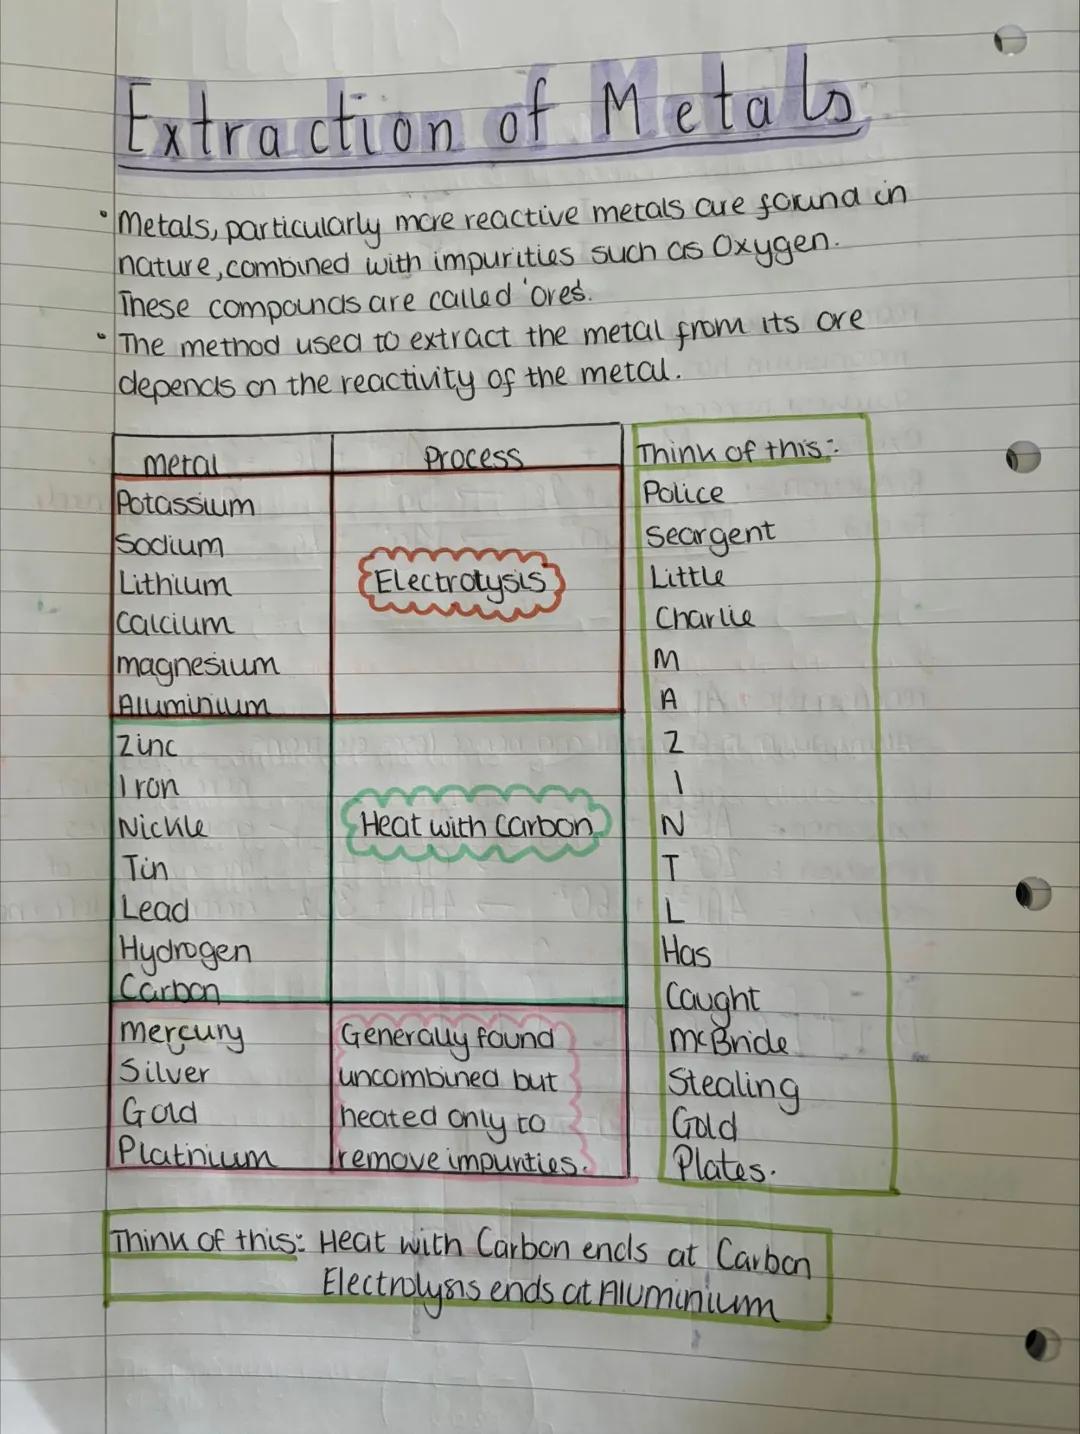 Extraction of Metals
• Metals, particularly more reactive metals are found in
nature, combined with impurities such as Oxygen.
These compounds are called 'ores'.
• The method used to extract the metal from its ore
depends on the reactivity of the metal.
Metal
Process
Potassium
Sodium
Lithium
Calcium
magnesium
Aluminium
Electrolysis
Zinc
Iron
Nickle
Tin
Lead
Hydrogen
Carbon
Heat with Carbon
mercury
Silver
Gold
Platnium
Generally found
uncombined but
heated only to
remove impurities.
Think of this:
Police
Seargent
Little
Charlie
M
A
Z
I
N
T
L
Has
Caught
McBride
Stealing
Gold
Plates.
Think of this: Heat with Carbon ends at Carbon
Electrolysis ends at Aluminium